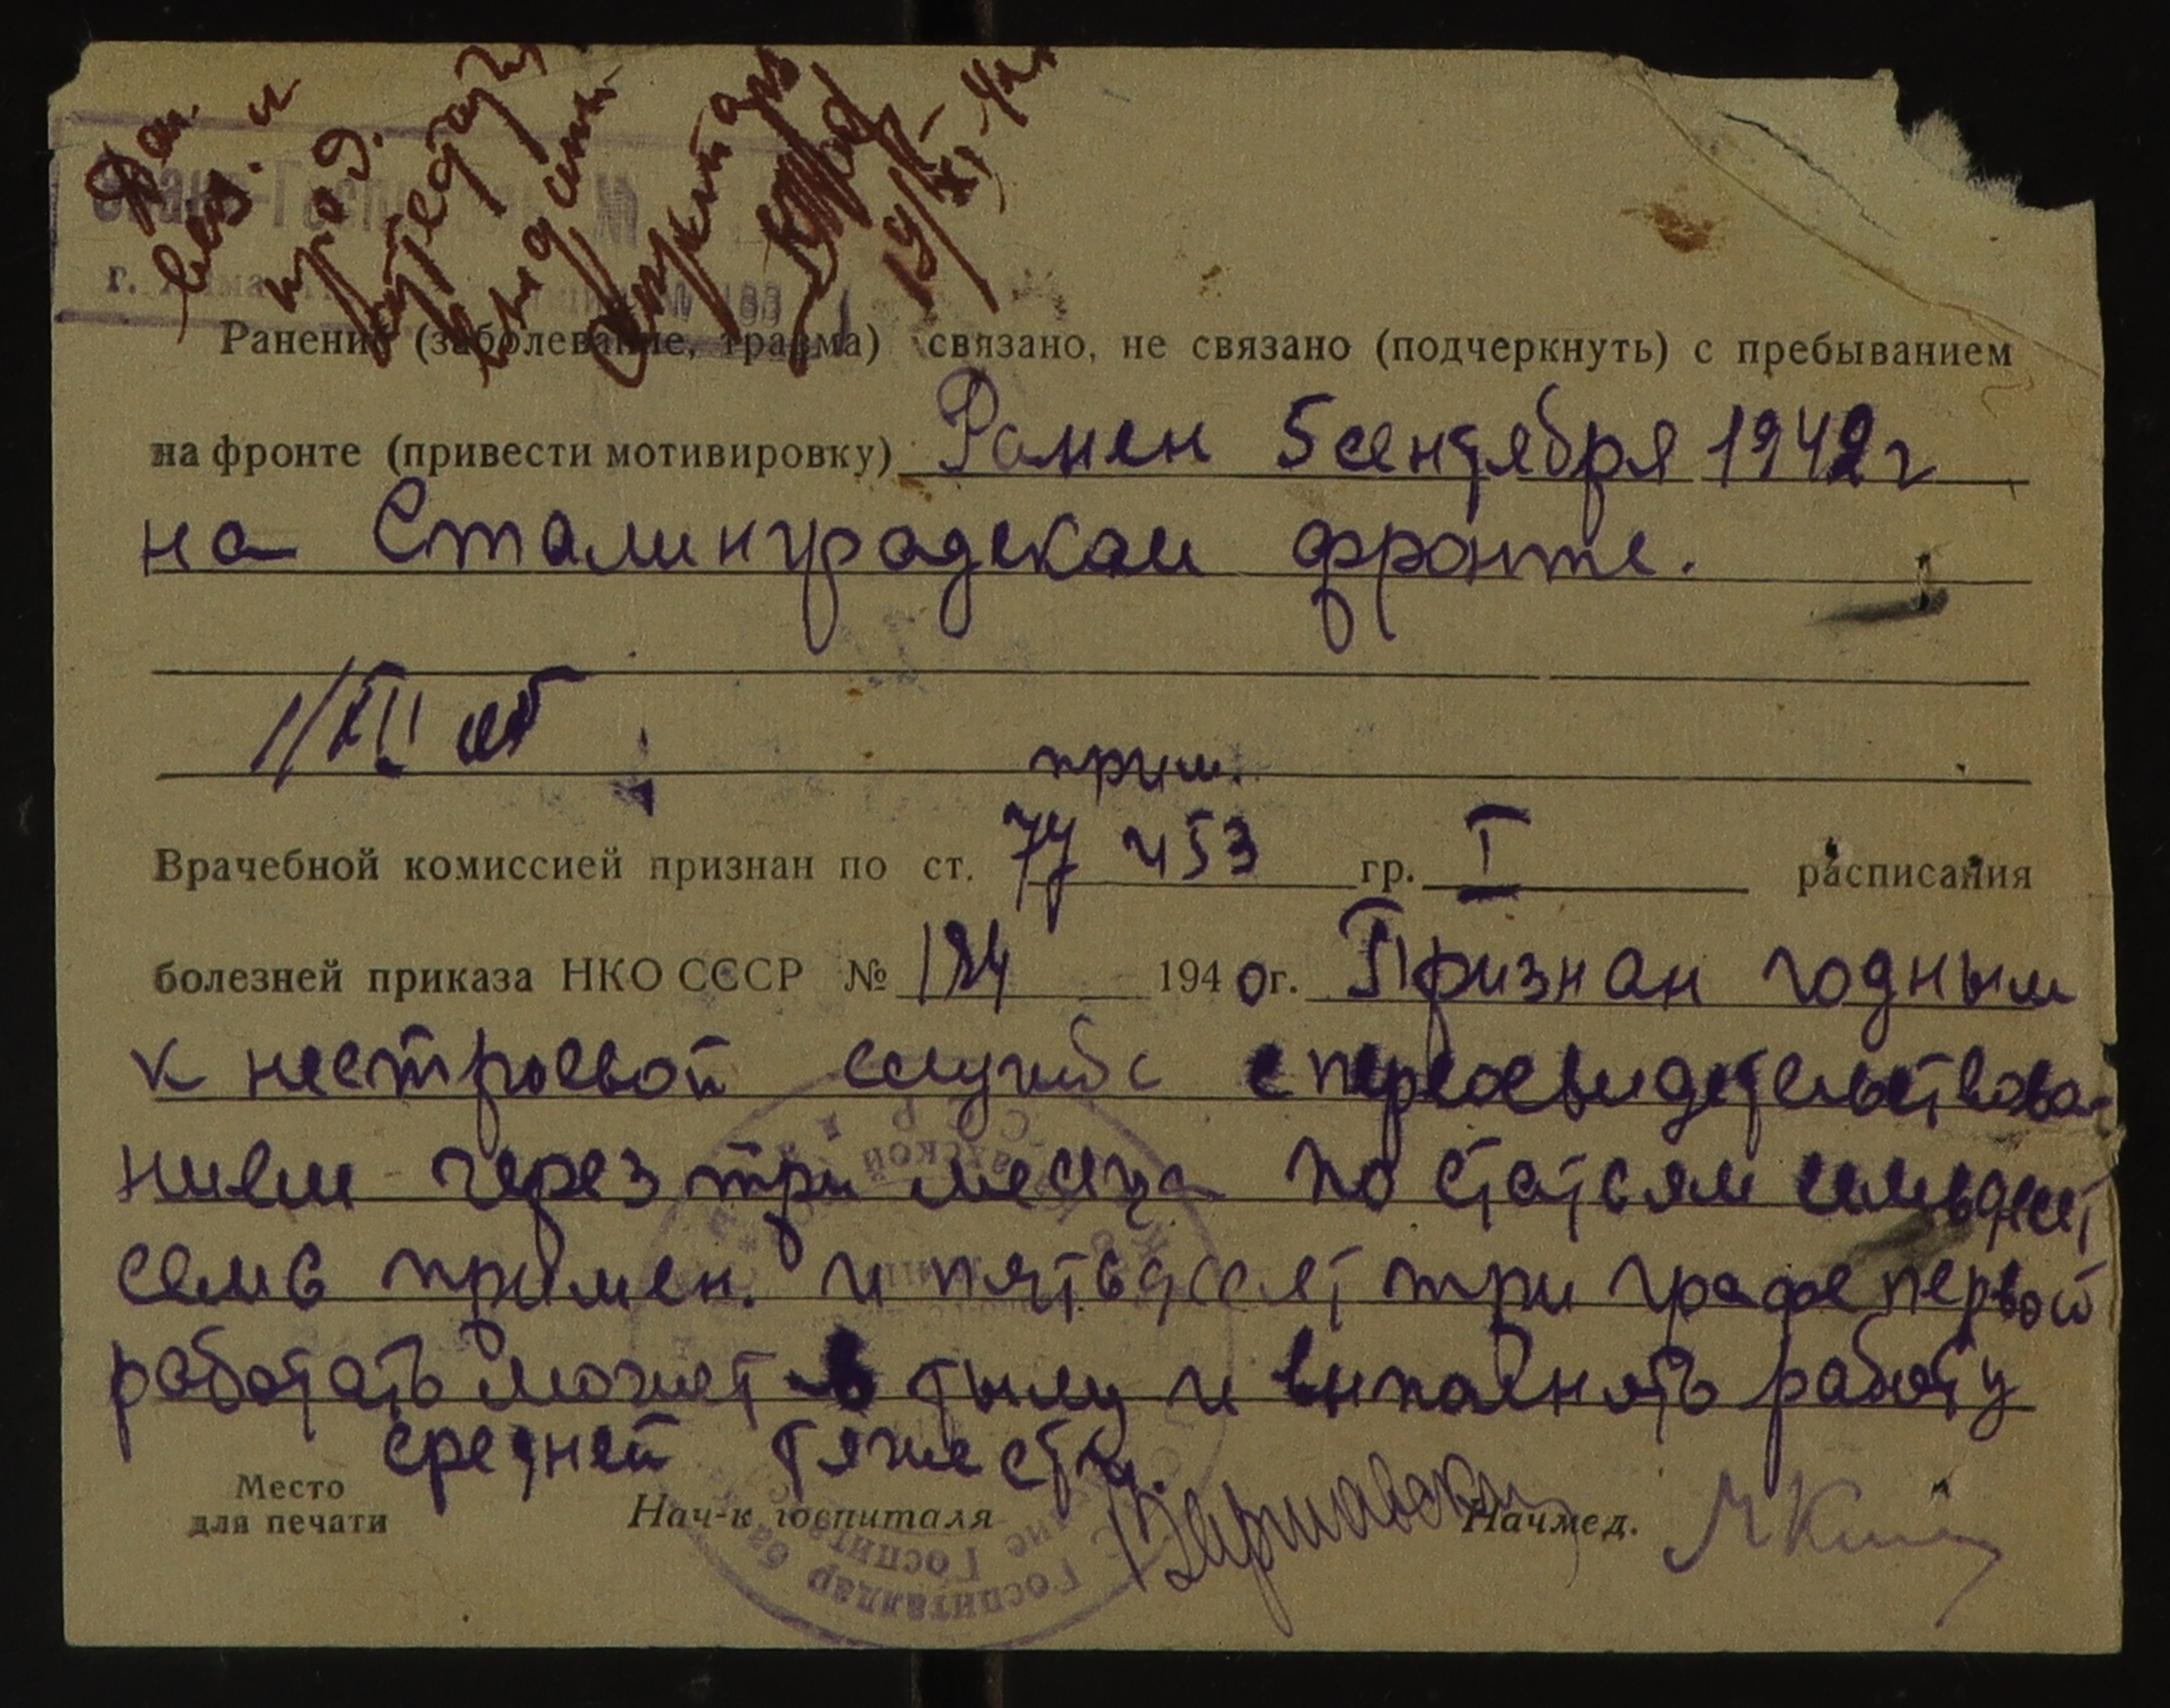 прод.
19/XI-42г
г.
Ранение (заболевание, травма) связано, не связано (подчеркнуть) с пребыванием
на фронте (привести мотивировку) Ранен 5 сентября 1942 г
на Сталинградском фронте.
1/XII
прим.
Врачебной комиссией признан по ст. 77 и 53 гр. I расписания
болезней приказа НКО СССР № 184 1940г. Признан годным
к нестроевой службе с переосвидетельствова-
нием через три месяца по статьям семьдесят
семь примен. и пятьдесят три графе первой
работать может в тылу и выполнять работу
средней тяжести.
Место
для печати
Нач-к госпиталя Варшавский Начмед.